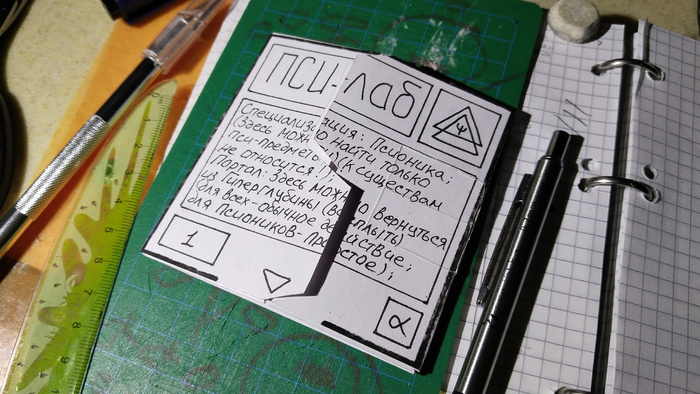 ПСИ-лаб
Ψ
Специализация: Псионика;
(Здесь можно найти только
пси-предметы!) (К существам
не относится!)
Портал: Здесь можно вернуться
из Гиперглубины (всплыть)
(для всех-обычное действие;
для псиоников-простое);
1
α